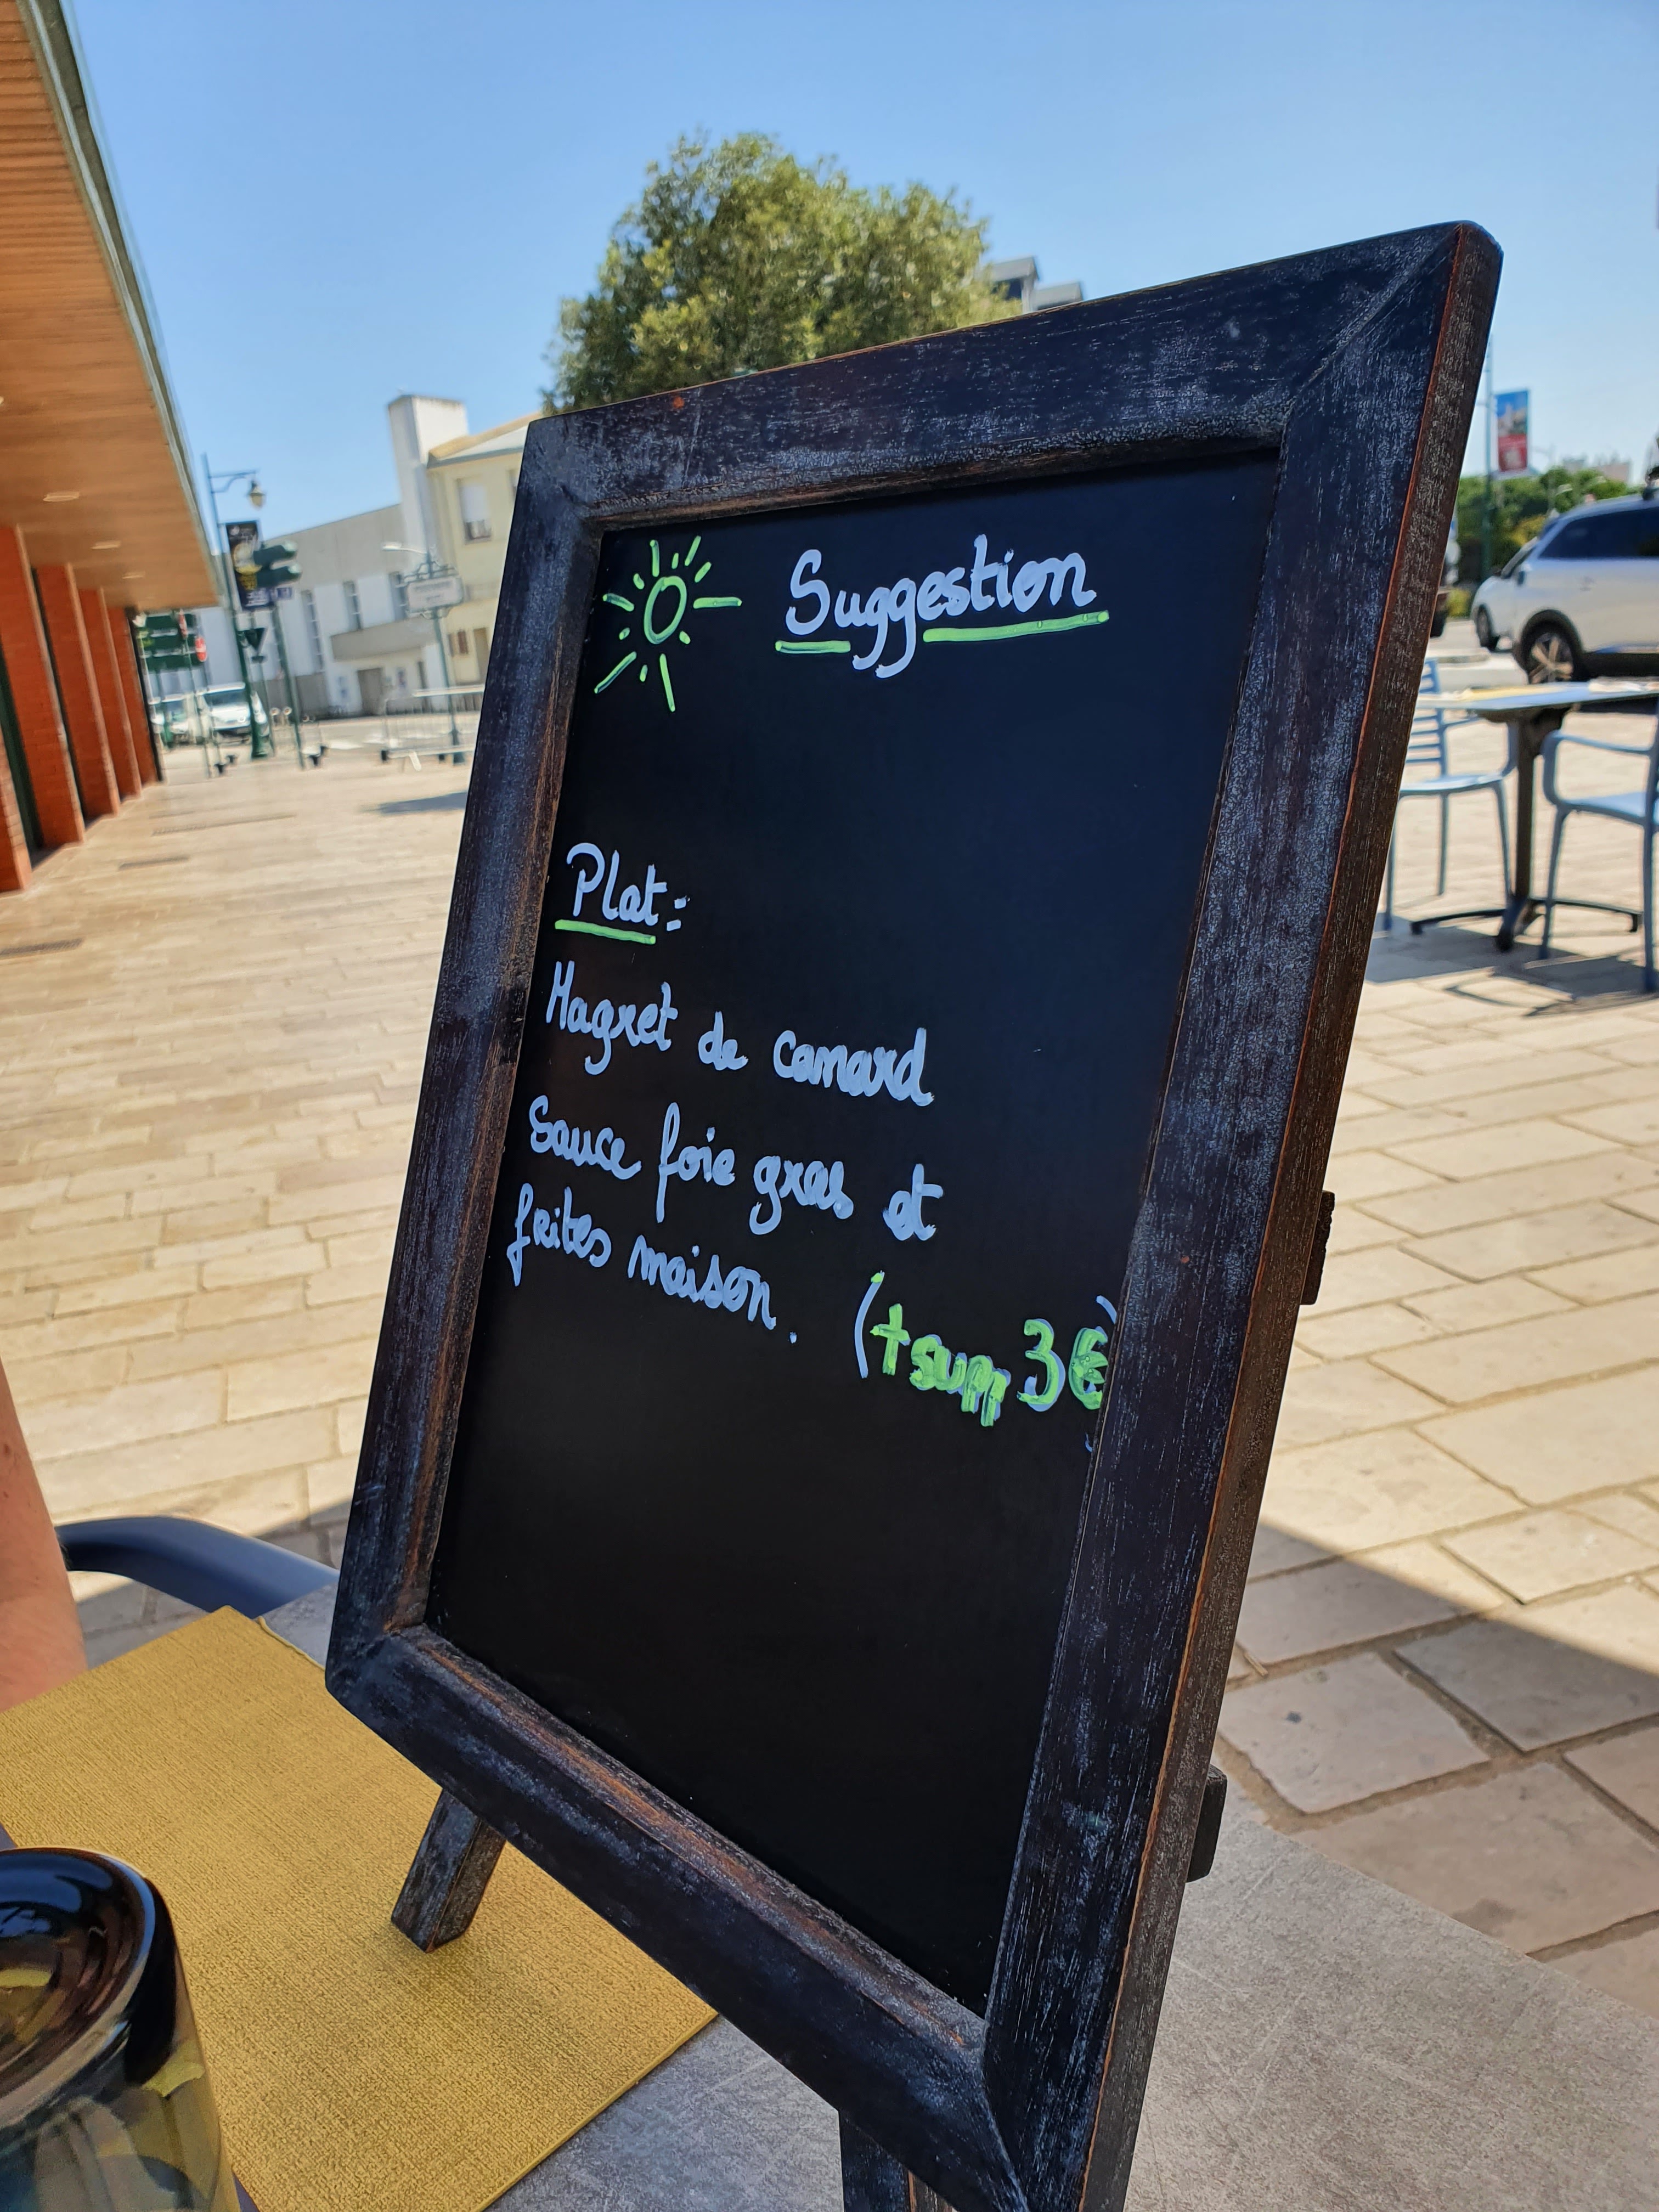 Suggestion
Plat:
Magret de canard
Sauce foie gras et
frites maison. (+ supp 3€)